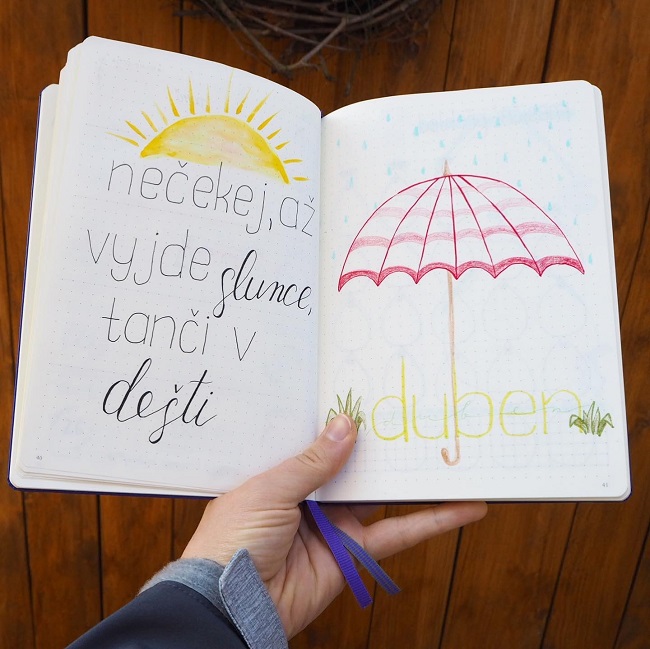 nečekej, až
vyjde slunce,
tanči v
dešti
duben